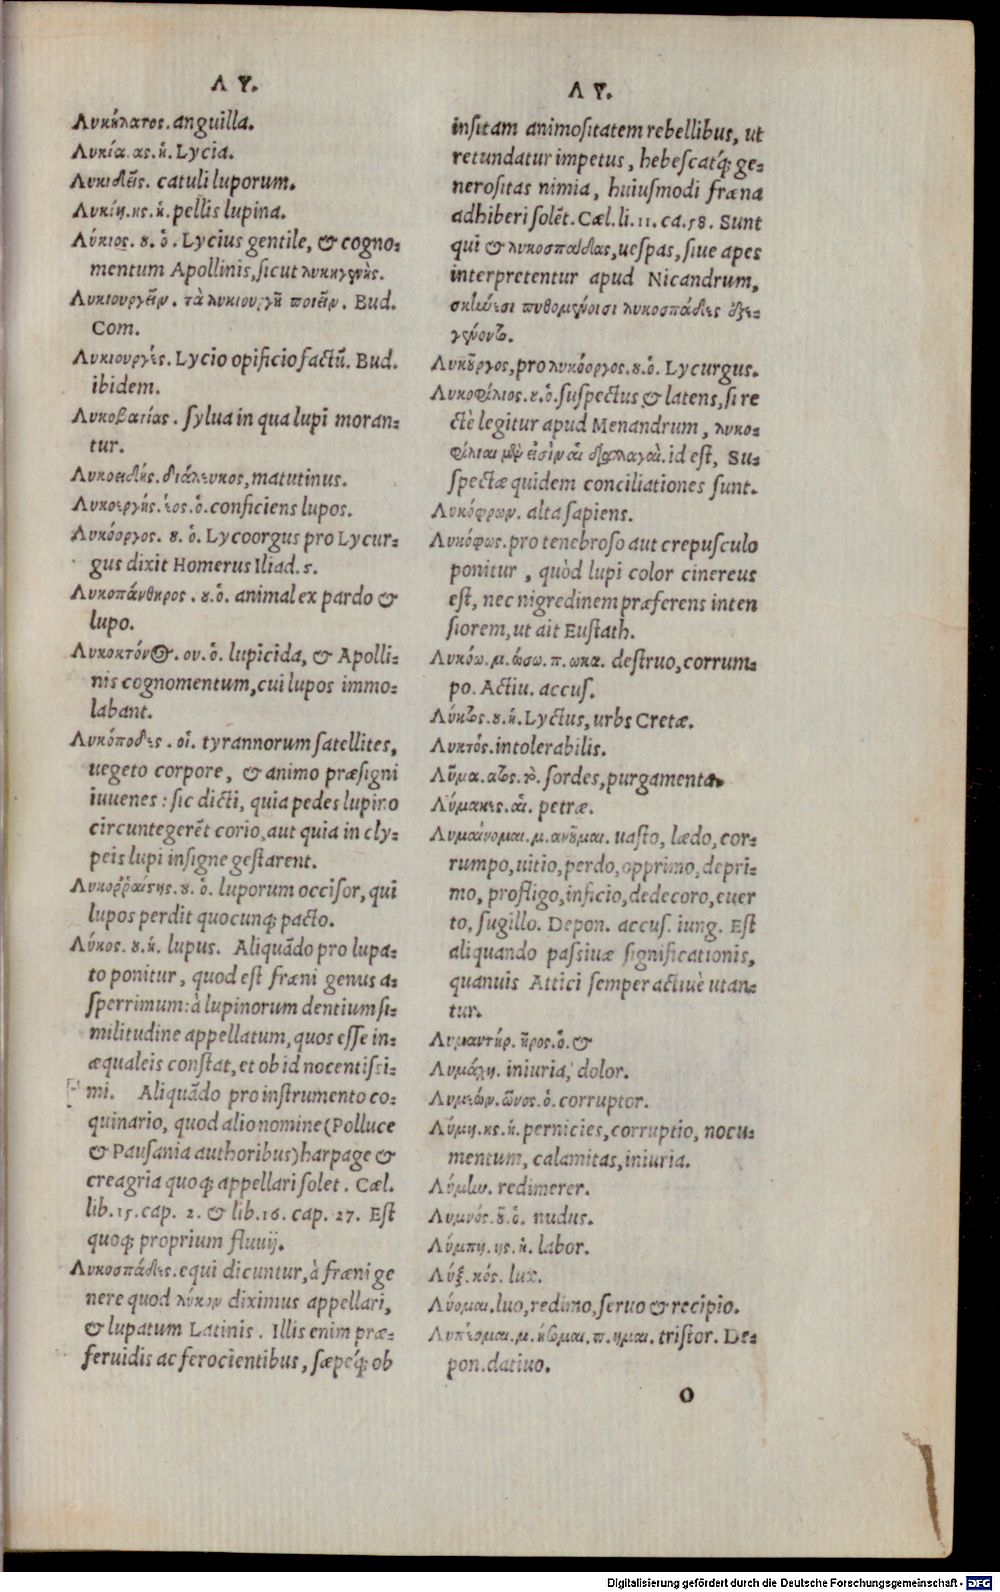 Λ Υ.
Λυκήλατος. anguilla.
Λυκία. ας. ἡ. Lycia.
Λυκιδεῖς. catuli luporum.
Λυκίη. ης. ἡ. pellis lupina.
Λύκιος. ȣ. ὁ. Lycius gentile, & cogno-
mentum Apollinis, sicut λυκηγενὴς.
Λυκιουργεῖν. τὰ λυκιουργῆ ποιεῖν. Bud.
Com.
Λυκιουργὲς. Lycio opificio factũ. Bud.
ibidem.
Λυκοβατίας. sylua in qua lupi moran-
tur.
Λυκοειδής. διάλευκος, matutinus.
Λυκοεργής. έος. ὁ. conficiens lupos.
Λυκόοργος. ȣ. ὁ. Lycoorgus pro Lycur-
gus dixit Homerus Iliad. ς.
Λυκοπάνθηρος. ȣ. ὁ. animal ex pardo &
lupo.
Λυκοκτόνος. ου. ὁ. lupicida, & Apolli-
nis cognomentum, cui lupos immo-
labant.
Λυκόποδες. οἱ. tyrannorum satellites,
uegeto corpore, & animo præsigni
iuuenes: sic dicti, quia pedes lupino
circuntegerẽt corio, aut quia in cly-
peis lupi insigne gestarent.
Λυκοῤῥαίστης. ȣ. ὁ. luporum occisor, qui
lupos perdit quocunq; pacto.
Λύκος. ȣ. ἡ. lupus. Aliquãdo pro lupa-
to ponitur, quod est fræni genus a-
sperrimum: à lupinorum dentium si-
militudine appellatum, quos esse in-
æqualeis constat, et ob id nocentissi-
mi. Aliquãdo pro instrumento co-
quinario, quod alio nomine (Polluce
& Pausania authoribus) harpage &
creagria quoq; appellari solet. Cæl.
lib. 15. cap. 2. & lib. 16. cap. 27. Est
quoq; proprium fluuij.
Λυκοσπάδες. equi dicuntur, à fræni ge
nere quod λύκον diximus appellari,
& lupatum Latinis. Illis enim præ-
feruidis ac ferocientibus, sæpeq́; ob
Λ Υ.
insitam animositatem rebellibus, ut
retundatur impetus, hebescatq́; ge-
nerositas nimia, huiusmodi fræna
adhiberi solẽt. Cæl. li. 11. ca. 58. Sunt
qui & λυκοσπάδας, uespas, siue apes
interpretentur apud Nicandrum,
σκήνεσι πυθομένοισι λυκοσπάδες ἐξε-
γένοντο.
Λυκȣ͂ργος, pro λυκόοργος. ȣ. ὁ. Lycurgus.
Λυκοφίλιος. ȣ. ὁ. suspectus & latens, si re
ctè legitur apud Menandrum, λυκο-
φίλιαι μὲν εἰσὶν αἱ διαλλαγαὶ. id est, Su-
spectæ quidem conciliationes sunt.
Λυκόφρων. alta sapiens.
Λυκόφως. pro tenebroso aut crepusculo
ponitur, quòd lupi color cinereus
est, nec nigredinem præferens inten
siorem, ut ait Eustath.
Λυκόω. μ. ώσω. π. ωκα. destruo, corrum-
po. Actiu. accus.
Λύκτος. ȣ. ἡ. Lyctus, urbs Cretæ.
Λυκτός. intolerabilis.
Λῦμα. ατος. τὸ. sordes, purgamenta.
Λύμακες. αἱ. petræ.
Λυμαίνομαι. μ. ανȣ͂μαι. uasto, lædo, cor-
rumpo, uitio, perdo, opprimo, depri-
mo, profligo, inficio, dedecoro, euer
to, sugillo. Depon. accus. iung. Est
aliquando passiuæ significationis,
quanuis Attici semper actiuè utan-
tur.
Λυμαντήρ. ῆρος. ὁ. &
Λυμάχη. iniuria, dolor.
Λυμεών. ῶνος. ὁ. corruptor.
Λύμη. ης. ἡ. pernicies, corruptio, nocu-
mentum, calamitas, iniuria.
Λύμην. redimerer.
Λυμνός. ȣ͂. ὁ. nudus.
Λύμπη. ης. ἡ. labor.
Λύξ. κός. lux.
Λύομαι. luo, redimo, seruo & recipio.
Λυπέομαι. μ. ήσομαι. π. ημαι. tristor. De-
pon. datiuo.
O
Digitalisierung gefördert durch die Deutsche Forschungsgemeinschaft - DFG